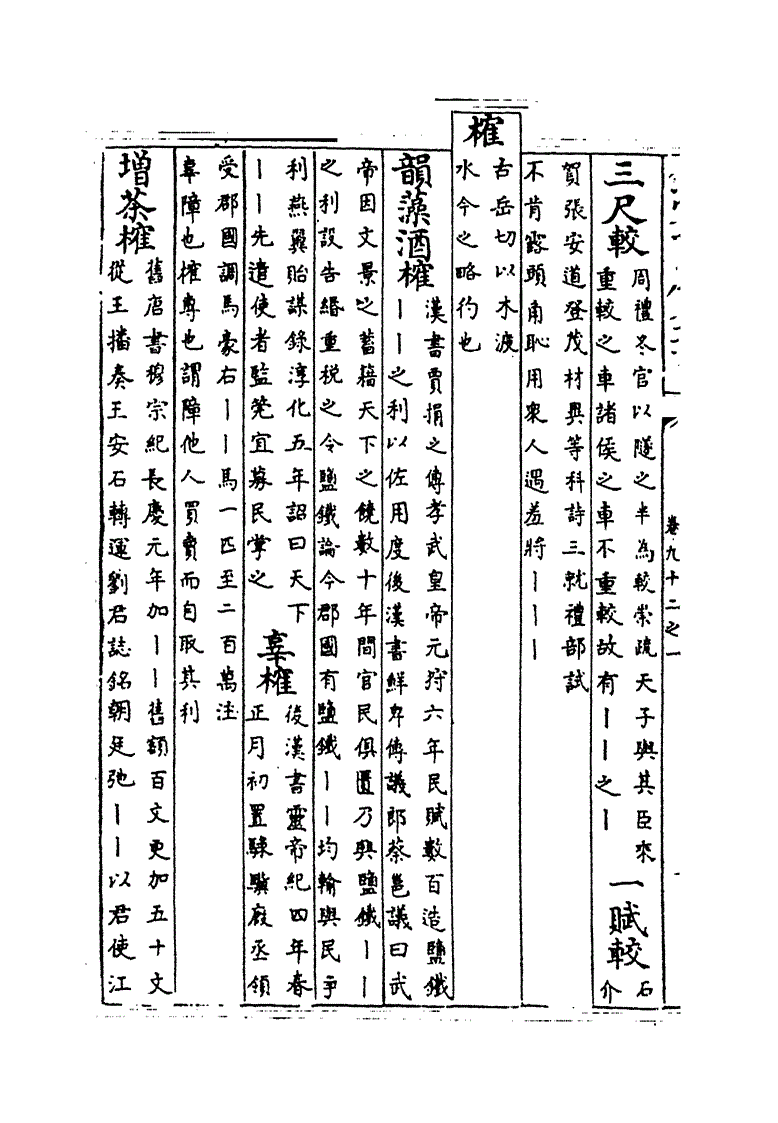 卷九十二之一
三尺較
周禮冬官以隧之半為較崇疏天子與其臣乘
重較之車諸侯之車不重較故有丨丨之丨
一賦較
石
介
賀張安道登茂材異等科詩三就禮部試
不肯露頭角恥用衆人遇羞將丨丨丨
榷
古岳切以木渡
水今之略彴也
韻藻酒榷
漢書賈捐之傳孝武皇帝元狩六年民賦數百造鹽鐵
丨丨之利以佐用度後漢書鮮卑傳議郎蔡邕議曰武
帝因文景之蓄藉天下之饒數十年間官民俱匱乃興鹽鐵丨丨
之利設告緡重税之令鹽鐵論今郡國有鹽鐵丨丨均輸與民爭
利燕翼貽謀錄淳化五年詔曰天下
丨丨先遣使者監筦宜募民掌之
辜榷
後漢書靈帝紀四年春
正月初置騄驥廄丞領
受郡國調馬豪右丨丨馬一匹至二百萬注
辜障也榷專也謂障他人買賣而自取其利
增茶榷
舊唐書穆宗紀長慶元年加丨丨舊額百文更加五十文
從王播奏王安石轉運劉君誌銘朝廷弛丨丨以君使江